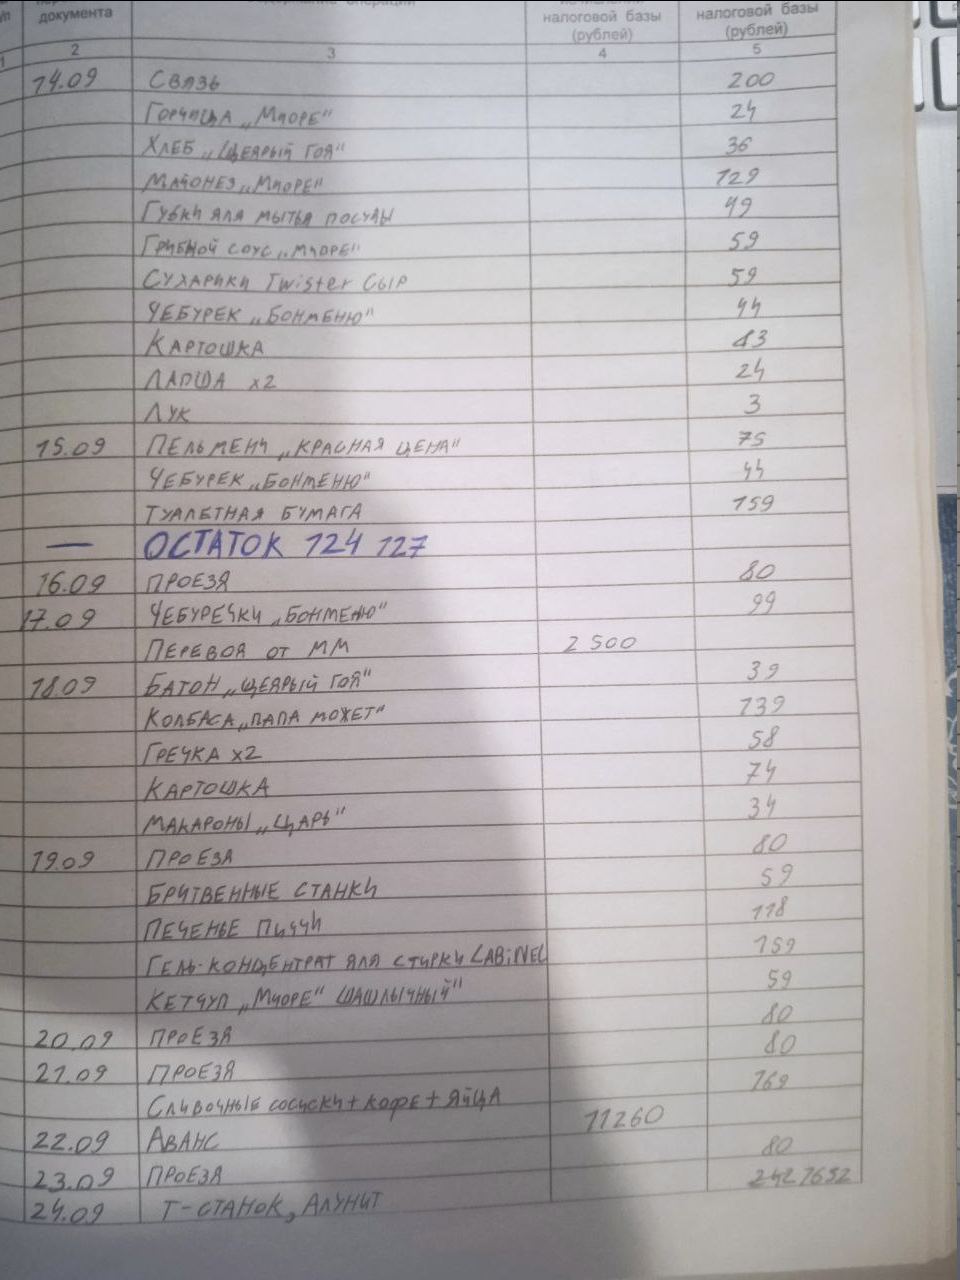 документа
налоговой базы налоговой базы
(рублей) (рублей)
1 2 3 4 5
14.09 Связь 200
Горчица „Миоре" 24
Хлеб „Щедрый год" 36
Майонез „Миоре" 129
Губки для мытья посуды 49
Грибной соус „Миоре" 59
Сухарики Twister Сыр 59
Чебурек „Бонменю" 44
Картошка
Лапша x2 24
Лук 3
15.09 Пельмени „Красная цена" 75
Чебурек „Бонменю" 44
Туалетная бумага 159
— ОСТАТОК 124 127
16.09 Проезд 80
17.09 Чебуречки „Бонменю" 99
Перевод от ММ 2 500
18.09 Батон „Щедрый год" 39
Колбаса „Папа может" 139
Гречка x2 58
Картошка 74
Макароны „Царь" 34
19.09 Проезд 80
Бритвенные станки 59
Печенье Пиччи 118
Гель-концентрат для стирки LABiNEL 159
Кетчуп „Миоре" шашлычный" 59
20.09 Проезд 80
21.09 Проезд 80
Сливочные сосиски + кофе + яйца 169
22.09 Аванс 11260
23.09 Проезд 80
24.09 Т-станок, Алунит